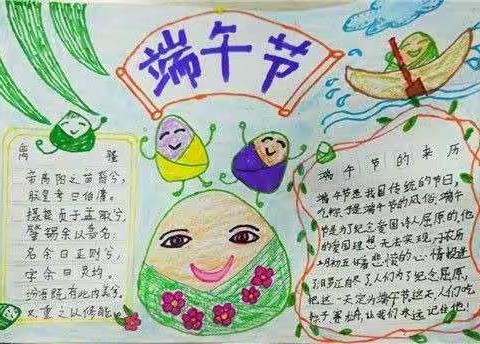 端午节
离骚
帝高阳之苗裔兮，
朕皇考曰伯庸。
摄提贞于孟陬兮
肇锡余以嘉名：
名余曰正则兮，
字余曰灵均，
纷吾既有此内美兮，
又重之以修能。
端午节的来历
端午节是我国传统的节日，
吃粽子是端午节的风俗。端午
节是为了纪念爱国诗人屈原的。他
的爱国理想无法实现，于农历
五月初五怀着悲愤的心情投进
了汨罗江自尽了人们为了纪念屈原，
把这一天定为端午节这天人们吃
粽子、赛龙舟，让我们永远记住他！